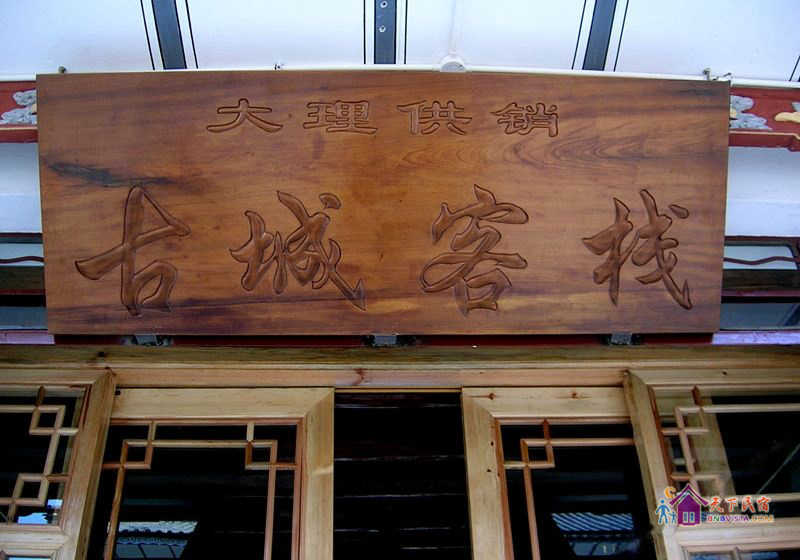 大理供销
古城客栈
天下民宿
BNBVISTA.COM